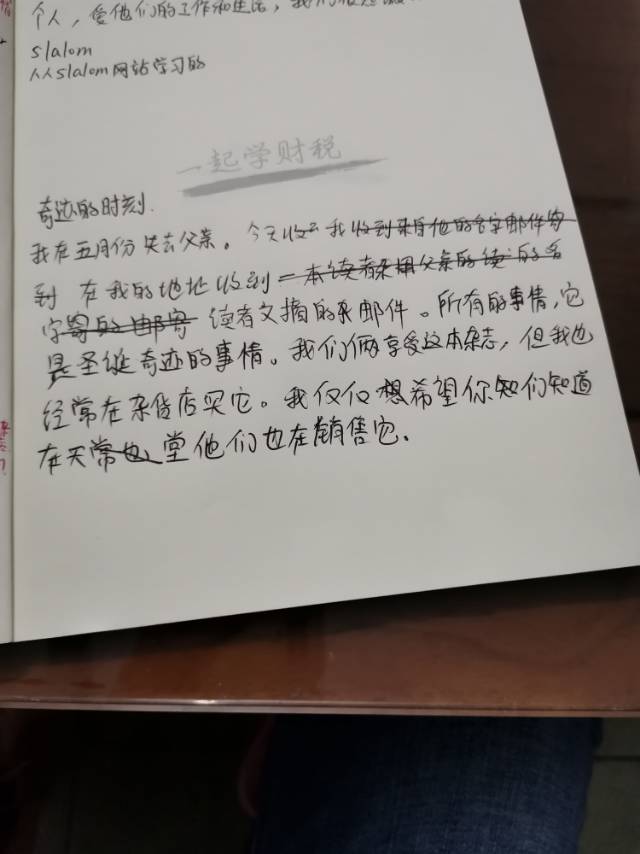 个人，爱他们的工作和生活，我们很
slalom
从slalom网站学习的
一起学财税
奇迹的时刻.
我在五月份失去父亲。今天收 我收到来自他的名字邮件寄
到 在我的地址收到一本读者来用父亲的读的名
字寄的邮寄 读者文摘的来邮件。所有的事情，它
是圣诞奇迹的事情。我们俩享受这本杂志，但我也
经常在杂货店买它。我仅仅想希望你知们知道
在天常也堂他们也在销售它.